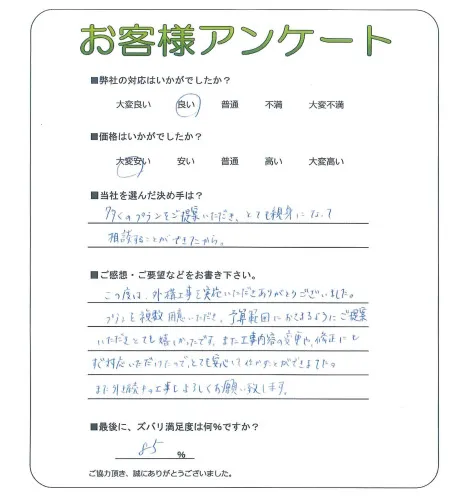 お客様アンケート
■弊社の対応はいかがでしたか？
大変良い 良い 普通 不満 大変不満
■価格はいかがでしたか？
大変安い 安い 普通 高い 大変高い
■当社を選んだ決め手は？
多くのプランをご提案いただき、とても親身になって
相談することができたから。
■ご感想・ご要望などをお書き下さい。
この度は、外構工事を実施いただきありがとうございました。
プランを複数用意いただき、予算範囲におさまるようにご提案
いただきとても嬉しかったです。また工事内容の変更や、修正にも
ご対応いただけたので、とても安心して任せることができました。
また外構工事よろしくお願い致します。
■最後に、ズバリ満足度は何%ですか？
85 %
ご協力頂き、誠にありがとうございました。